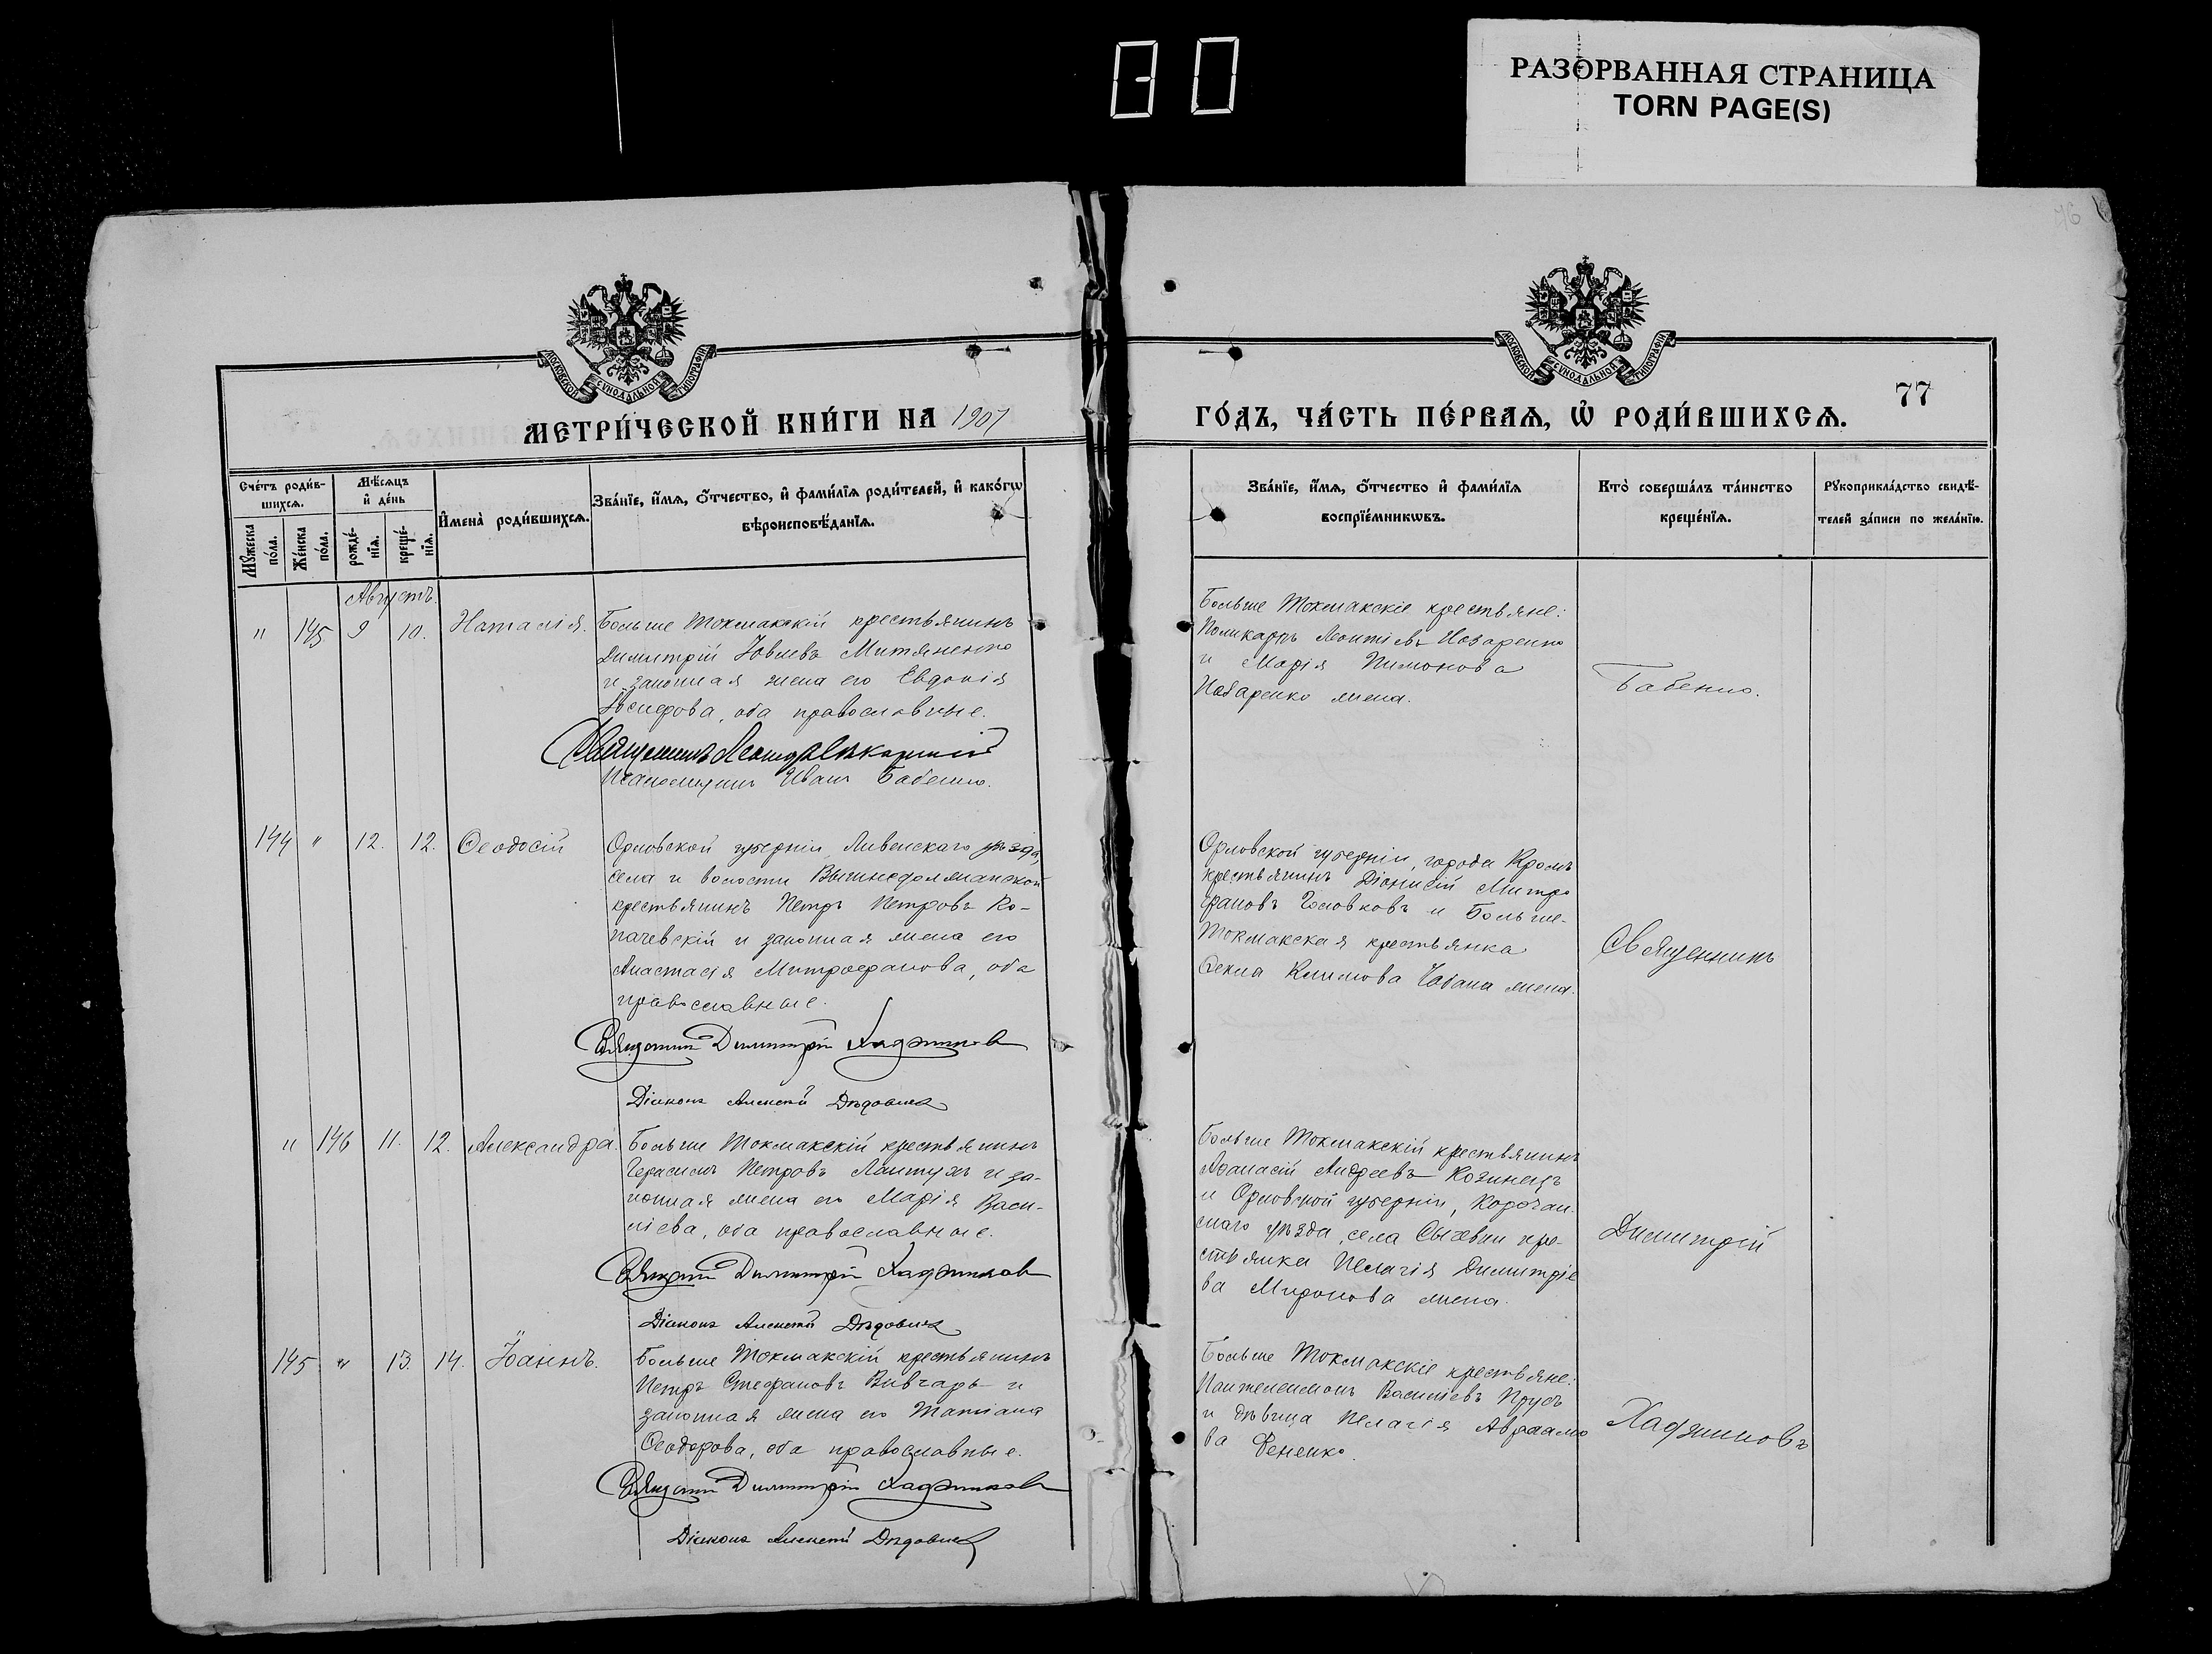 РАЗОРВАННАЯ СТРАНИЦА
TORN PAGE(S)
76
МОСКОВСКОЙ СѴНОДАЛЬНОЙ ТИПОГРАФІИ
МОСКОВСКОЙ СѴНОДАЛЬНОЙ ТИПОГРАФІИ
МЕТРИ́ЧЕСКОЙ КНИ́ГИ НА 1907
ГО́ДЪ, ЧА́СТЬ ПЕ́РВАѦ, Ѡ҆ РОДИ́ВШИХСѦ.
77
Сче́тъ роди́в-
шихсѧ.
Мꙋ́жеска по́ла.
Же́нска по́ла.
Мѣ́сѧцъ
и҆ де́нь
рожде́-
нїѧ.
креще́-
нїѧ.
И҆мена̀ роди́вшихсѧ.
Зва́нїе, и҆́мѧ, ѻ҆́тчество, и҆ фами́лїѧ роди́телей, и҆ како́гѡ
вѣроисповѣ́данїѧ.
Зва́нїе, и҆́мѧ, ѻ҆́тчество и҆ фами́лїѧ
воспрїе́мникѡвъ.
Кто̀ соверша́лъ та́инство
креще́нїѧ.
Рꙋкоприкла́дство свидѣ́-
телей за́писи по жела́нїю.
Августъ.
" 145 9 10. Наталія.
Больше Токмакскій крестьянинъ
Димитрій Іовлевъ Митяненко
и законная жена его Евдокія
Іосифова, оба православные.
Священникъ Леонид
Псаломщикъ Иван Бабенко.
Больше Токмакскіе крестьяне:
Поликарпъ Леонтіевъ Назаренко
и Марія Пимонова
Назаренко жена.
Бабенко.
144 " 12. 12. Ѳеодосій
Орловской губерніи, Ливенскаго уѣзда,
села и волости
крестьянинъ Петръ Петровъ Ко-
пачевскій и законная жена его
Анастасія Митрофанова, оба
православные.
Священник Димитрій Хаджинов
Діаконъ Алексѣй Дѣдовичъ
Орловской губерніи, города Кромъ
крестьянинъ Діонисій Митро
фановъ Головковъ и Больше-
Токмакская крестьянка
Ѳекла Климова Чабана жена.
Священникъ
" 146 11. 12. Александра.
Больше Токмакскій крестьянинъ
Герасимъ Петровъ Лантухъ и за-
конная жена его Марія Васи-
ліева, оба православные.
Священник Димитрій Хаджинов
Діаконъ Алексѣй Дѣдовичъ
Больше Токмакскій крестьянинъ
Аѳанасій Андреевъ Козинецъ
и Орловской губерніи, Корочан-
скаго уѣзда, села Сычевки кре-
стьянка Пелагія Димитріе
ва Миронова жена.
Димитрій
145 " 13. 14. Іоаннъ.
Больше Токмакскій крестьянинъ
Петръ Стефановъ Вивчарь и
законная жена его Татіана
Ѳеодорова, оба православные.
Священник Димитрій Хаджинов
Діаконъ Алексѣй Дѣдовичъ
Больше Токмакскіе крестьяне:
Пантелеимонъ Василіевъ Прусъ
и дѣвица Пелагія Авраамо
ва Фененко.
Хаджиновъ